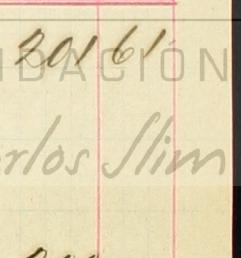 20161
DACIÓN
rlos Slim